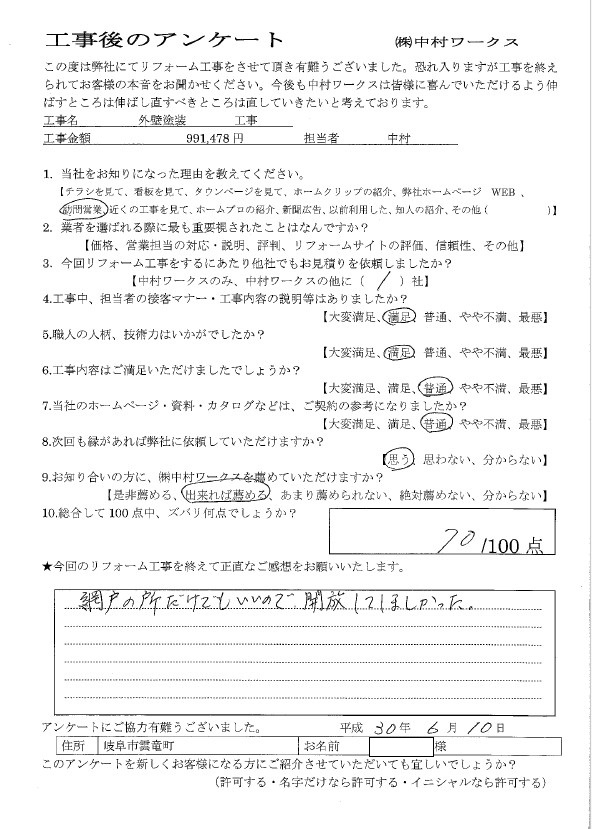 工事後のアンケート　㈱中村ワークス
この度は弊社にてリフォーム工事をさせて頂き有難うございました。恐れ入りますが工事を終え
られてお客様の本音をお聞かせください。今後も中村ワークスは皆様に喜んでいただけるよう伸
ばすところは伸ばし直すべきところは直していきたいと考えております。
工事名　外壁塗装　工事
工事金額　991,478円　担当者　中村
1. 当社をお知りになった理由を教えてください。
【チラシを見て、看板を見て、タウンページを見て、ホームクリップの紹介、弊社ホームページ　WEB、
訪問営業、近くの工事を見て、ホームプロの紹介、新聞広告、以前利用した、知人の紹介、その他（　　）】
2. 業者を選ばれる際に最も重要視されたことはなんですか？
【価格、営業担当の対応・説明、評判、リフォームサイトの評価、信頼性、その他】
3. 今回リフォーム工事をするにあたり他社でもお見積りを依頼しましたか？
【中村ワークスのみ、中村ワークスの他に（ / ）社】
4.工事中、担当者の接客マナー・工事内容の説明等はありましたか？
【大変満足、満足、普通、やや不満、最悪】
5.職人の人柄、技術力はいかがでしたか？
【大変満足、満足、普通、やや不満、最悪】
6.工事内容はご満足いただけましたでしょうか？
【大変満足、満足、普通、やや不満、最悪】
7.当社のホームページ・資料・カタログなどは、ご契約の参考になりましたか？
【大変満足、満足、普通、やや不満、最悪】
8.次回も縁があれば弊社に依頼していただけますか？
【思う、思わない、分からない】
9.お知り合いの方に、㈱中村ワークスを薦めていただけますか？
【是非薦める、出来れば薦める、あまり薦められない、絶対薦めない、分からない】
10.総合して100点中、ズバリ何点でしょうか？
70/100点
★今回のリフォーム工事を終えて正直なご感想をお願いいたします。
網戸の所だけでもいいので開放してほしかった。
アンケートにご協力有難うございました。　平成30年6月10日
住所　岐阜市雲竜町　お名前　様
このアンケートを新しくお客様になる方にご紹介させていただいても宜しいでしょうか？
（許可する・名字だけなら許可する・イニシャルなら許可する）